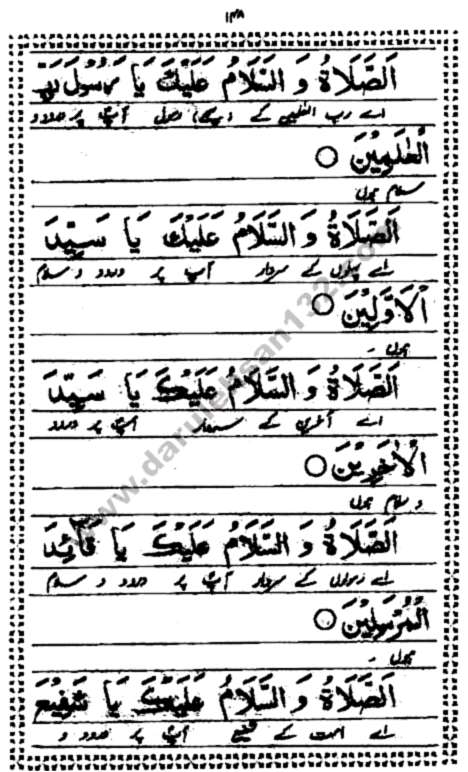 ۱۳۸
اَلصَّلَاةُ وَ السَّلَامُ عَلَيْكَ يَا رَسُوْلَ رَبِّ
اے رب العلمین کے رسول آپ پر درود و
الْعٰلَمِيْنَ ○
سلام ہوں
اَلصَّلَاةُ وَ السَّلَامُ عَلَيْكَ يَا سَيِّدَ
اے پہلوں کے سردار آپ پر درود و سلام
الْاَوَّلِيْنَ ○
ہوں ۔
اَلصَّلَاةُ وَ السَّلَامُ عَلَيْكَ يَا سَيِّدَ
اے آخرین کے سردار آپ پر درود
الْاٰخِرِيْنَ ○
و سلام ہوں
اَلصَّلَاةُ وَ السَّلَامُ عَلَيْكَ يَا قَائِدَ
اے رسولوں کے سردار آپ پر درود و سلام
الْمُرْسَلِيْنَ ○
ہوں ۔
اَلصَّلَاةُ وَ السَّلَامُ عَلَيْكَ يَا شَفِيْعَ
اے امت کے شفیع آپ پر درود و
www.darulehsan132.com